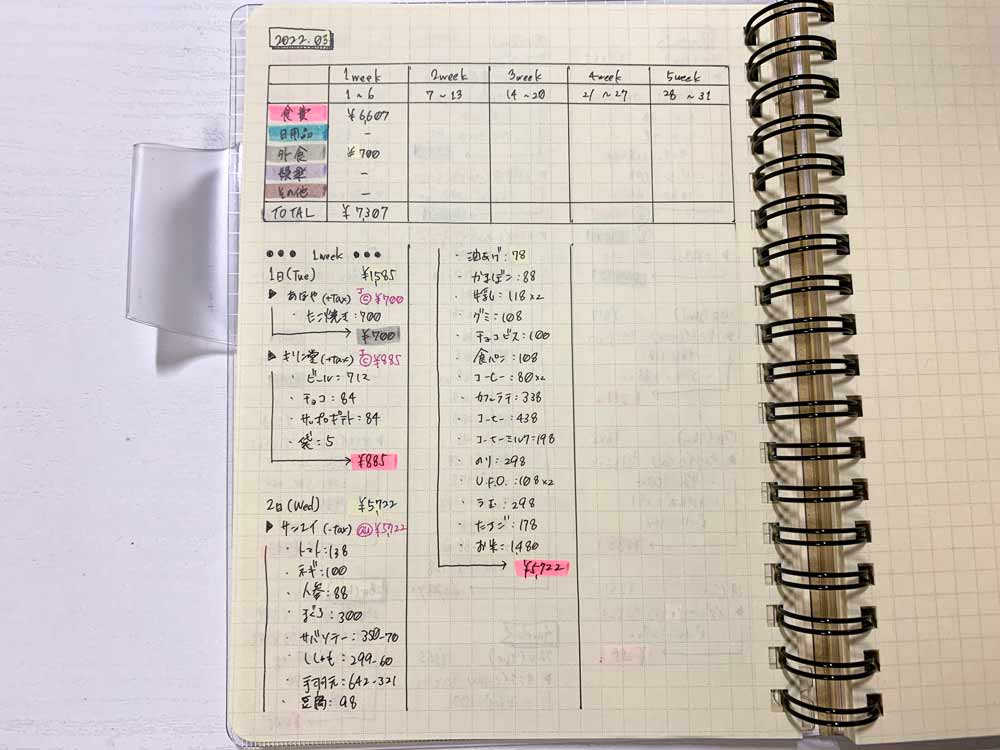 2022.03
1week 2week 3week 4week 5week
1~6 7~13 14~20 21~27 28~31
食費 ¥6,607
日用品 -
外食 ¥700
娯楽 -
その他 -
TOTAL ¥7307
••• 1week •••
1日(Tue) ¥1,585
▶ (+Tax) J © ¥700
・モン焼き:700
→ ¥700
▶ キリン堂(+Tax) J © ¥885
・ビール:712
・チョコ:84
・サッポロポテト:84
・袋:5
→ ¥885
2日(Wed) ¥5,722
▶ サンエイ(-Tax) au ¥5,722
・トマト:138
・ネギ:100
・人参:88
・まぐろ:300
・サバソテー:350-70
・ししゃも:299-60
・手羽元:642-321
・豆腐:98
・油あげ:78
・かまぼこ:88
・牛乳:118×2
・グミ:108
・チョコビス:100
・食パン:108
・コーヒー:80×2
・カフェラテ:338
・コーヒー:438
・コーヒーミルク:198
・のり:298
・U.F.O.:108×2
・ラム:298
・たまご:178
・お米:1,480
→ ¥5,722